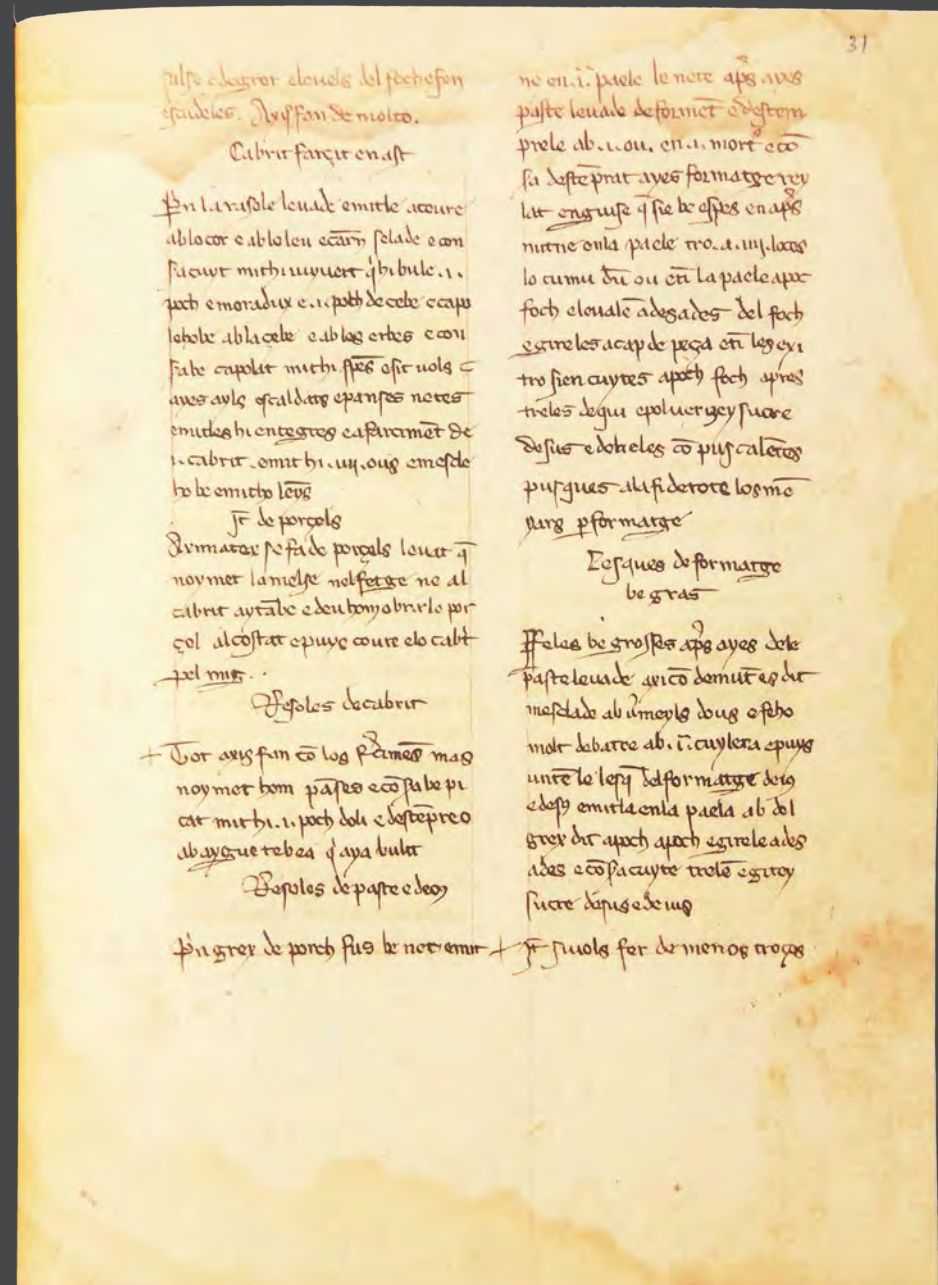 31
salse e de grex e leuels del foch e fen
escudeles. Axis fan de molto.
Cabrit farçit en ast
Pn la rasole leuade e mitle a coure
ab lo cor e ab lo leu e carn salade e con
sa cuyt mit hi iuyuert q̄ hi bule .i.
poch e moradux e .i. poch de cebe e capo
le ho be ab la çebe e ab les erbes e con
sabe capolat mit hi spēs e sit uols
ayes ayls escaldats e panses netes
e mitles hi entegres e a farcimēt de
.i. cabrit . e mit hi .iiij. ous e mescle
ho be e mitho leyns
Jt̄ de porçels
Axi mater se fa de porçels leuat q̄
no y met la melse nel fetge ne al
cabrit aytābe e deu hom obrir lo por
çel al costat e puys coure e lo cabt
pel mig . .
Resoles de cabrit
+ Tot axis fan cō los farcimēs mas
no y met hom pāses e cō sabe pi
cat mit hi .i. poch doli e destēpreo
ab aygue tebea q̄ aya bulit
Resoles de paste e de oy
Pn grex de porch fus be net e mit
ne en .i.ª paele le nete aps̄ ayes
paste leuade de formēt e destem
prele ab .i. ou. en .i. mortº e cō
sa destēprat ayes formatge rey
lat en guise q̄ sie be espes en aps̄
mit ne en la paele tro .a. iiij. loces
lo cumu dū ou etī la paele a poc
foch e leuale ādes ades del foch
e gireles a cap de peça etī les exi
tro sien cuytes a poch foch apres
treles de qui e poluerizey sucre
desus e doneles cō pus calētes
pusques a la fi de tots los mē
yars p̱ formatge
Lesques de formatge
be gras
Ffeles be grosses aps̄ ayes dele
paste leuade axi cō demūt es dit
mesclade ab ū meyls dous e fe ho
molt debatre ab .i.ª cuylera e puys
unte le lesq̄ del formatge deius
e desus e mit la en la paela ab del
grex dit a poch a poch e girele ades
ades e cō sa cuyte trele ē e gitey
sucre desus e deius
+ Jt̄ si uols fer de menos troços